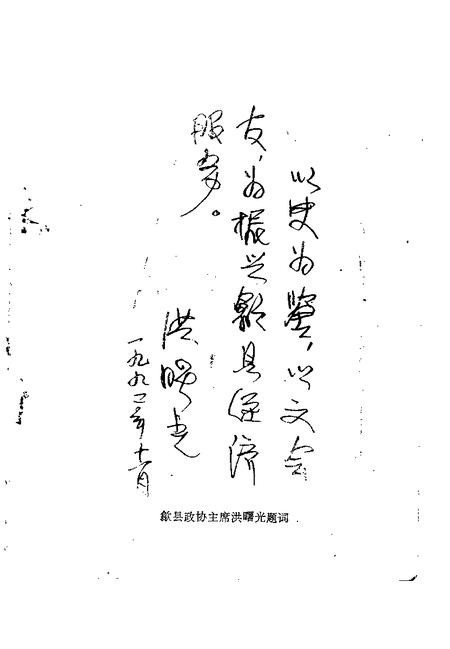 以史为鉴，以文会
友，为振兴歙县经济
服务。
洪曙光
一九九二年十二月
歙县政协主席洪曙光题词